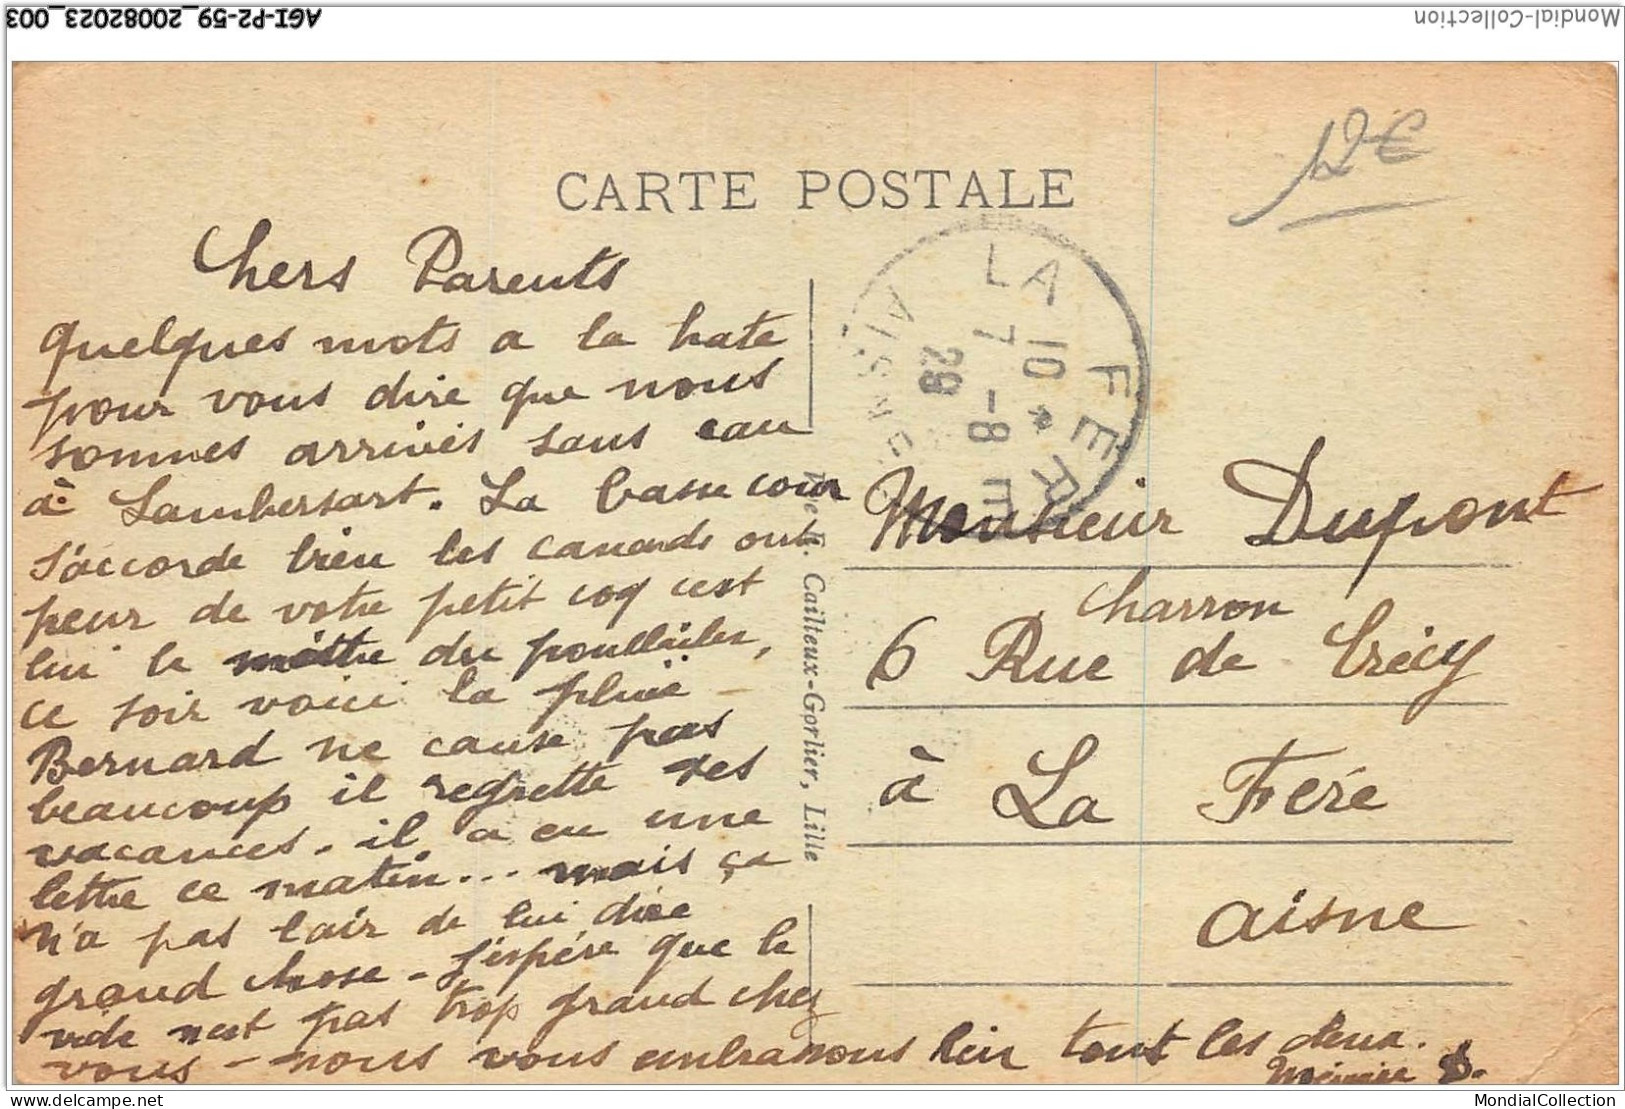 AGI-P2-59_20082023_003
Mondial-Collection
12€
CARTE POSTALE
LA FERE
10
7 - 8
29
AISNE
Chers Parents
quelques mots a la hate
pour vous dire que nous
sommes arrivés sans eau
à Lambersart. La basse cour
s'accorde bien les canards ont
peur de votre petit coq c'est
lui le mettre du poullailer,
ce soir voici la pluie
Bernard ne cause pas
beaucoup il regrette ses
vacances - il a eu une
lettre ce matin... mais ça
n'a pas l'air de lui dire
grand chose - J'espére que le
vide n'est pas trop grand chez
vous - nous vous embrassons bien tout les deux.
Cailteux-Gorlier, Lille
Monsieur Dupont
Charron
6 Rue de Crécy
à La Fére
Aisne
MondialCollection
delcampe.net